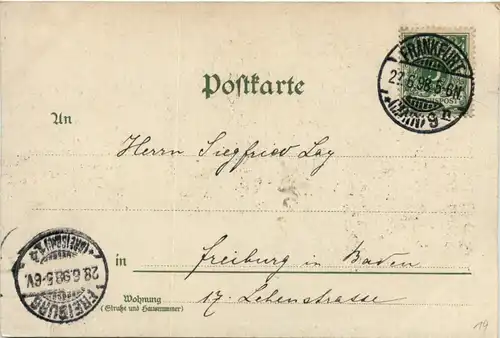 Postkarte
FRANKFURT
27.6.98.5-6N.
(MAIN) 9
An
Herrn Siegfried Lay
in Freiburg in Baden
Wohnung
(Straße und Hausnummer)
17. Lehenstrasse
FREIBURG
28.6.98.5-6V.
(BREISGAU)
19